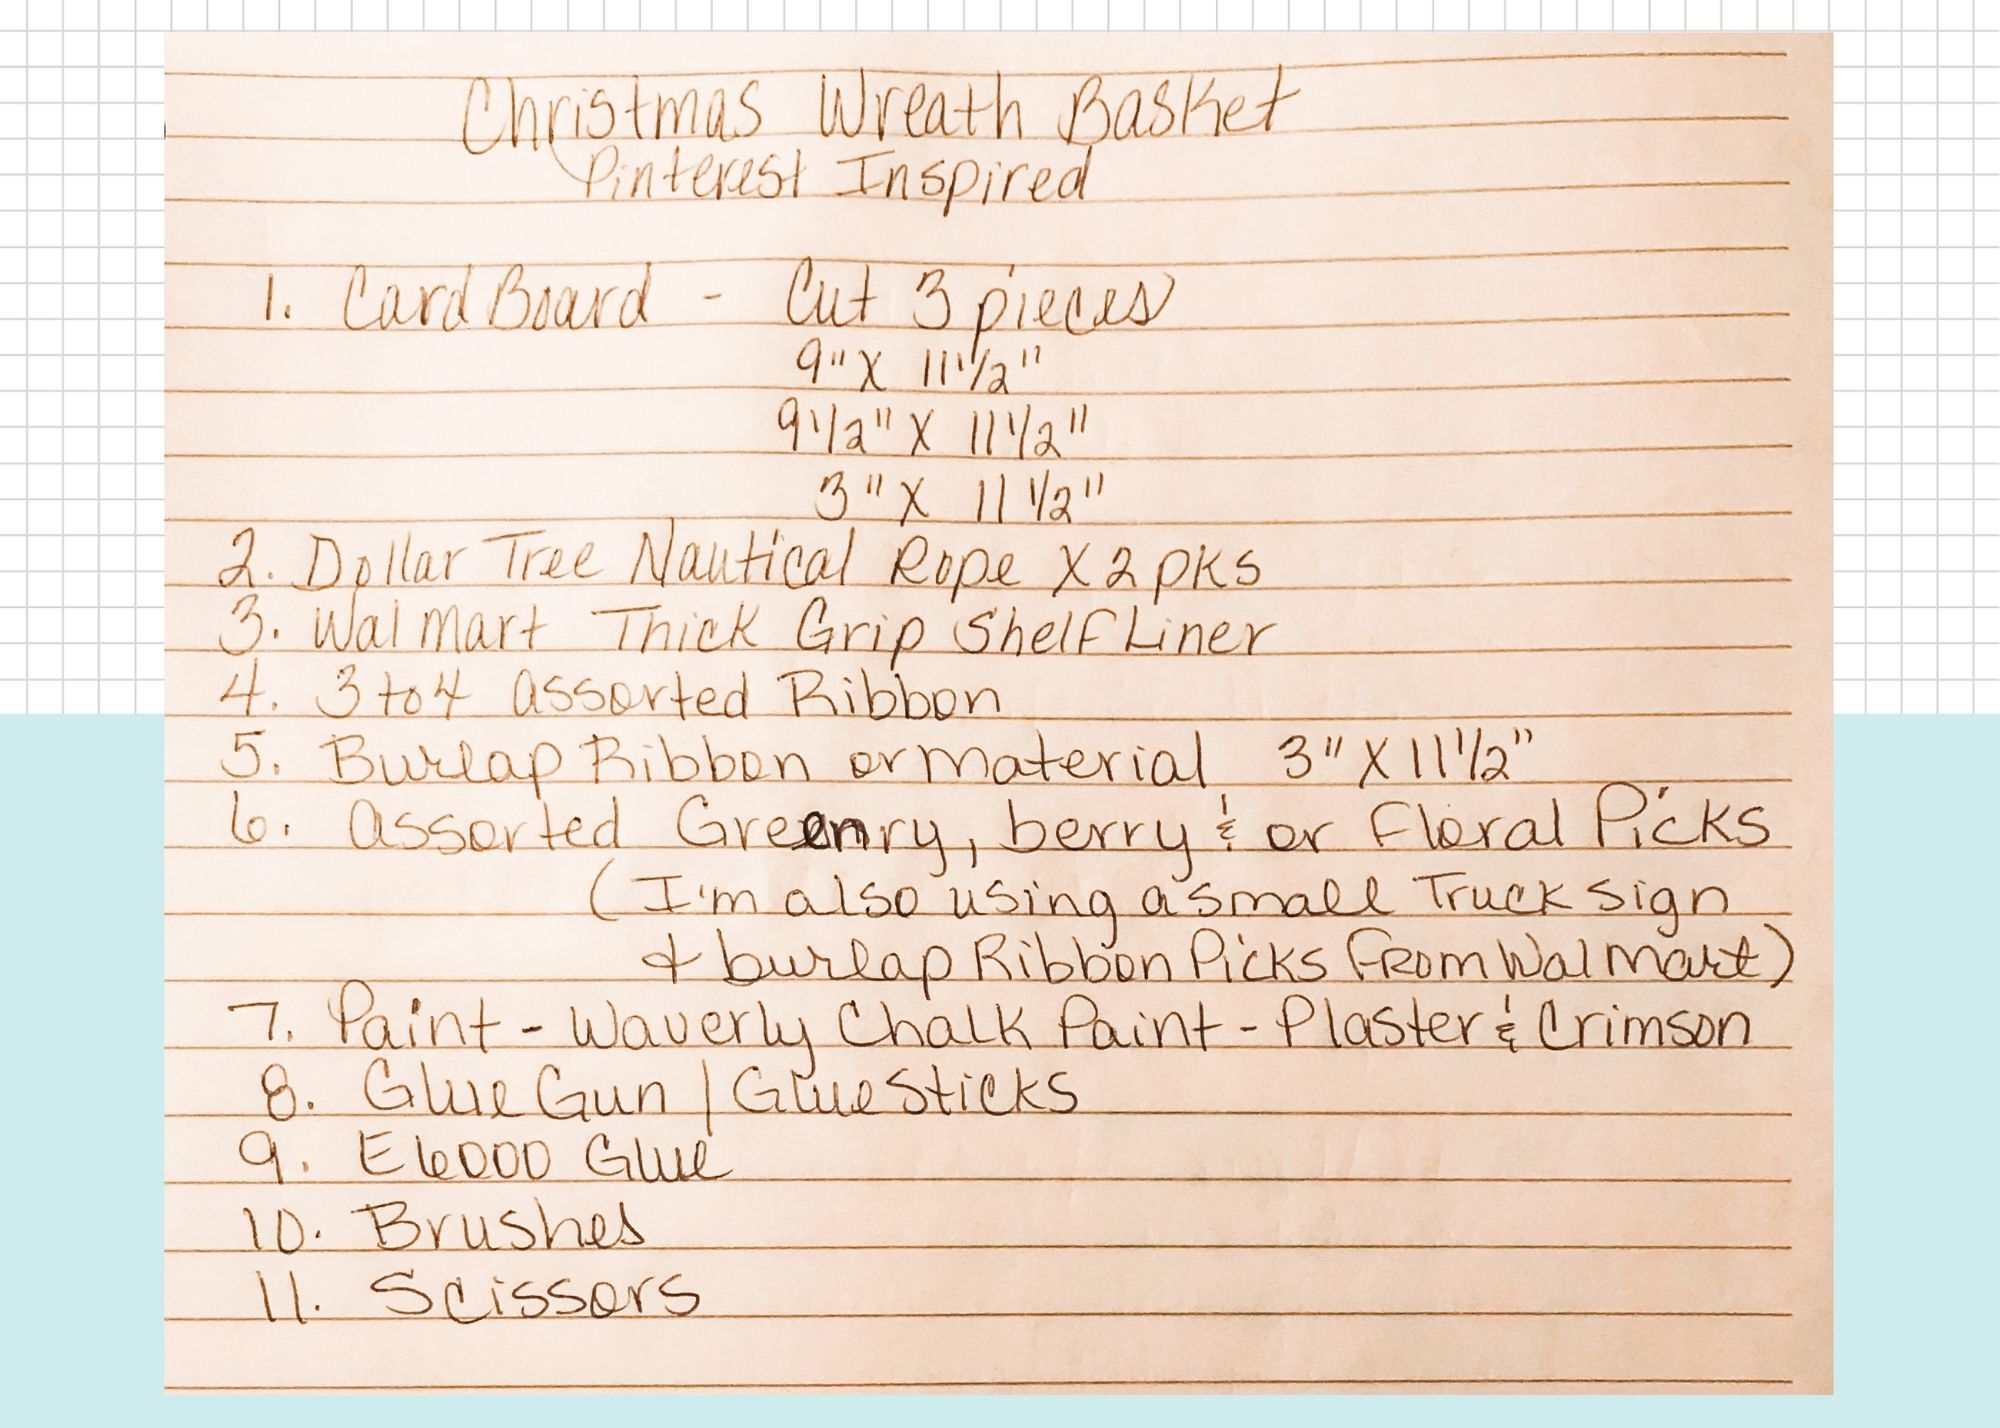 Christmas Wreath Basket
Pinterest Inspired
1. CardBoard - Cut 3 pieces
9" X 11 1/2"
9 1/2" X 11 1/2"
3" X 11 1/2"
2. Dollar Tree Nautical Rope X 2 pks
3. Walmart Thick Grip Shelf Liner
4. 3 to 4 assorted Ribbon
5. Burlap Ribbon or material 3" X 11 1/2"
6. assorted Greenry, berry & or Floral Picks
(I'm also using a small Truck sign
& burlap Ribbon Picks From Walmart)
7. Paint - Waverly Chalk Paint - Plaster & Crimson
8. Glue Gun / Glue Sticks
9. E6000 Glue
10. Brushes
11. Scissors